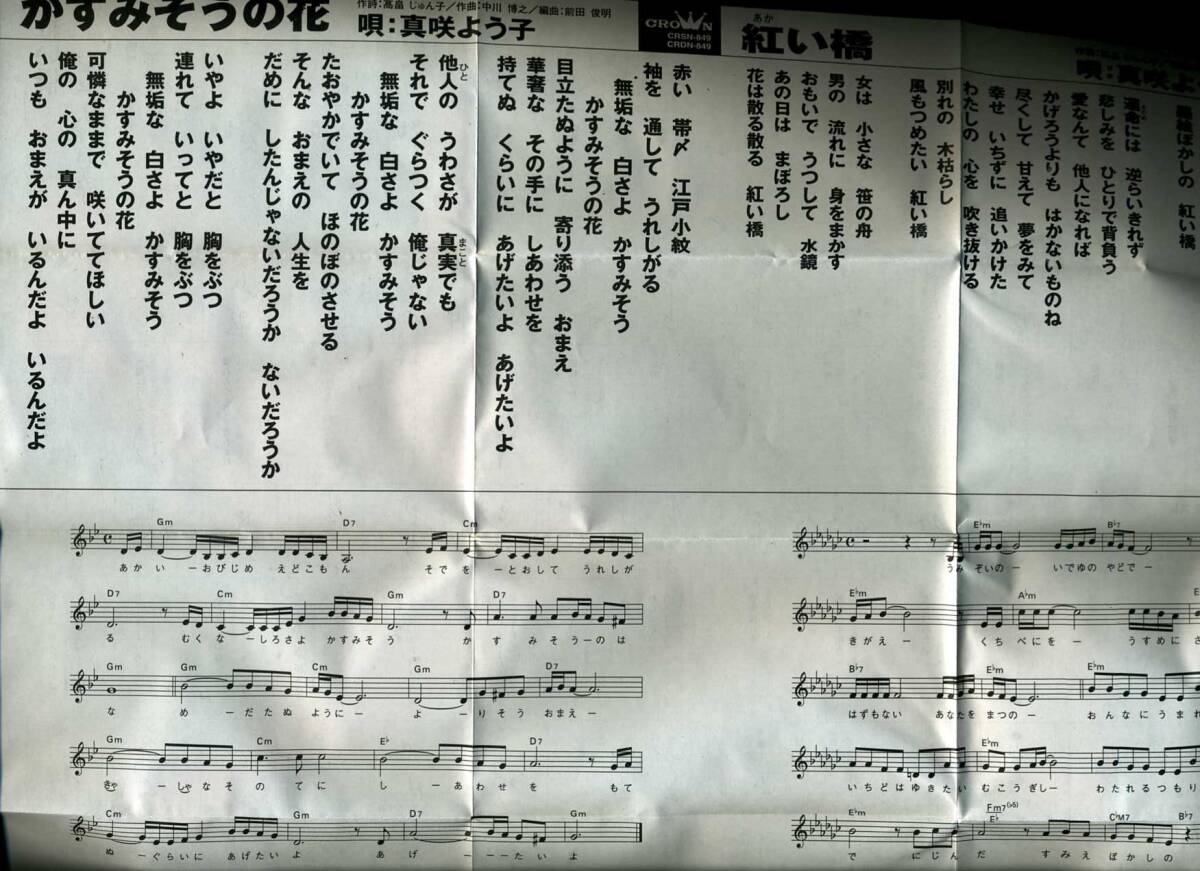 かすみそうの花
作詩:髙畠 じゅん子/作曲:中川 博之/編曲:前田 俊明
唄:真咲よう子
赤い 帯〆 江戸小紋
袖を 通して うれしがる
無垢な 白さよ かすみそう
かすみそうの花
目立たぬように 寄り添う おまえ
華奢な その手に しあわせを
持てぬ くらいに あげたいよ あげたいよ
他人の うわさが 真実でも
ひと
まこと
それで ぐらつく 俺じゃない
無垢な 白さよ かすみそう
かすみそうの花
たおやかでいて ほのぼのさせる
そんな おまえの 人生を
だめに したんじゃないだろうか ないだろうか
いやよ いやだと 胸をぶつ
連れて いってと 胸をぶつ
無垢な 白さよ かすみそう
かすみそうの花
可憐なままで 咲いててほしい
俺の 心の 真ん中に
いつも おまえが いるんだよ いるんだよ
CROWN
CRSN-849
CRDN-849
あか
紅い橋
唄:真咲よ
ぼかしの 紅い橋
運命には 逆らいきれず
悲しみを ひとりで背負う
愛なんて 他人になれば
かげろうよりも はかないものね
尽くして 甘えて 夢をみて
幸せ いちずに 追いかけた
わたしの 心を 吹き抜ける
別れの 木枯らし
風もつめたい 紅い橋
女は 小さな 笹の舟
男の 流れに 身をまかす
おもいで うつして 水鏡
あの日は まぼろし
花は散る散る 紅い橋
Gm D7 Cm
あかい ーおびじめ えどこもん そでをーとおして うれしが
D7 Cm Gm D7
る むくなーしろさよ かすみそう かすみそうーのは
Gm Gm Cm Gm D7
な めーだたぬ ようにー よーりそう おまえー
Gm Cm E♭ D7
きゃーしゃなそ のてに しーあわせを もて
Cm Gm D7 Gm
ぬーぐらいに あげたいよ あげーーたいよ
E♭m B♭7
うみぞいのー いでゆの やどでー
E♭m A♭m E
きがえー くちべにをー うすめにさ
B♭7 E♭m E♭m
はずもない あなたを まつのー おんなにうまれ
E♭m
いちどはゆきたい むこうぎしー わたれるつもり
E♭m Fm7(♭5) E♭ C♭M7 B♭7
でにじんだ すみえ ぼかしの